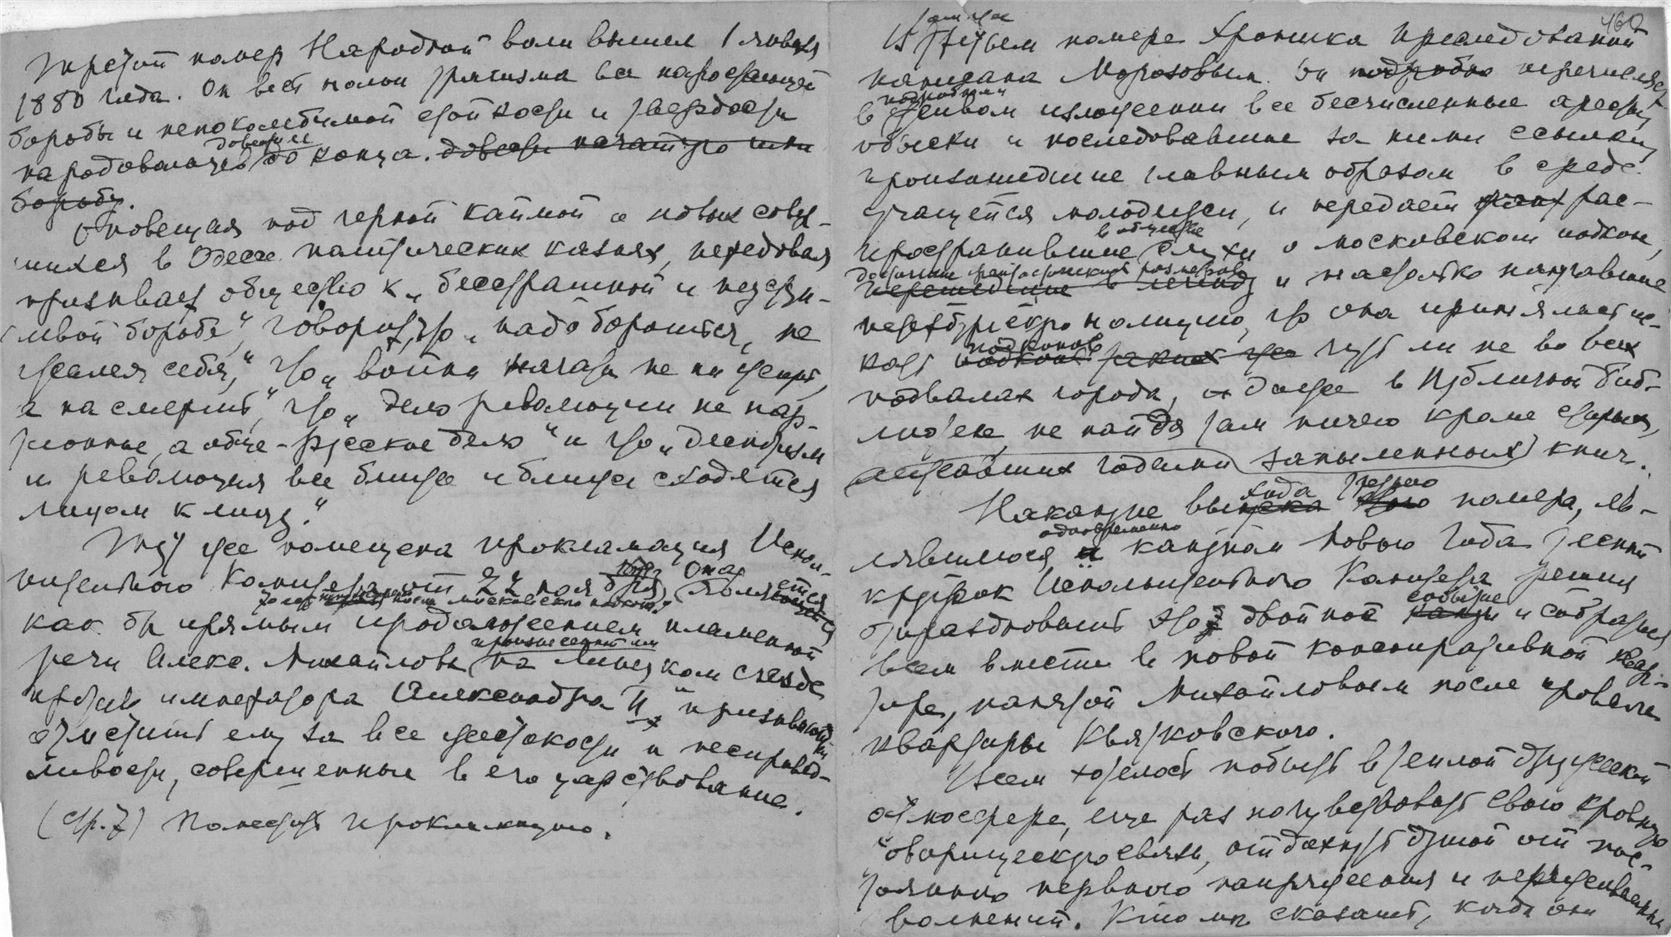 Третий номер Народной воли вышел 1 января
1880 года. Он весь полон призыва все нарастающей
борьбы и непоколебимой стойкости и твердости
народовольцев довести ее до конца. довести начатую ими
борьбу.
Оповещая под черной каймой о новых совер-
шихся в Одессе политических казнях, передовая
призывает общество к „бесстрашной и неутри-
мой борьбе", говорит, что „надо бороться, не
жалея себя", что „войны начаты не на живот,
а на смерть", что „дело революции не пар-
тионное, а обще-русское дело" и что „деспотизм
и революция все ближе и ближе сходятся
лицом к лицу."
Тут же помещена прокламация Испол-
нительного Комитета от 22 ноября 1879 Она является
после московского
как бы прямым продолжением пламенной
речи Алекс. Михайлова произнесенной им на Липецком съезде
против императора Александра II и призывающей
отомстить ему за все жестокости и несправед-
ливости, совершенные в его царствование.
(стр. 7) Поместить прокламацию.
460
В третьем номере Хроника преследований
написана Морозовым. Он подробно перечисляет
в подробном изложении все бесчисленные аресты,
обыски и последовавшие за ними ссылки,
происшедшие главным образом в среде
учащейся молодежи, и передает рас-
пространившиеся в обществе слухи о московском подкопе,
перешедшие в легенду и настолько напугавшие
петербургскую полицию, что она принялась ис-
кать подкопов чуть ли не во всех
подвалах города, и даже в Публичной биб-
лиотеке не найдя там ничего кроме старых,
лежавших годами запыленных книг.
Накануне выхода третьего номера, яв-
лявшимся одновременно и кануном Нового Года тесный
кружок Исполнительного Комитета решил
отпраздновать это двойное событие и собраться
всем вместе в новой конспиративной квар-
тире, нанятой Михайловым после провала
квартиры Квятковского.
Всем хотелось побыть в теплой дружеской
атмосфере, еще раз почувствовать свою кровную
товарищескую связь, отдохнуть душой от пос-
тоянного нервного напряжения и
волнений. Кто мог сказать, когда они